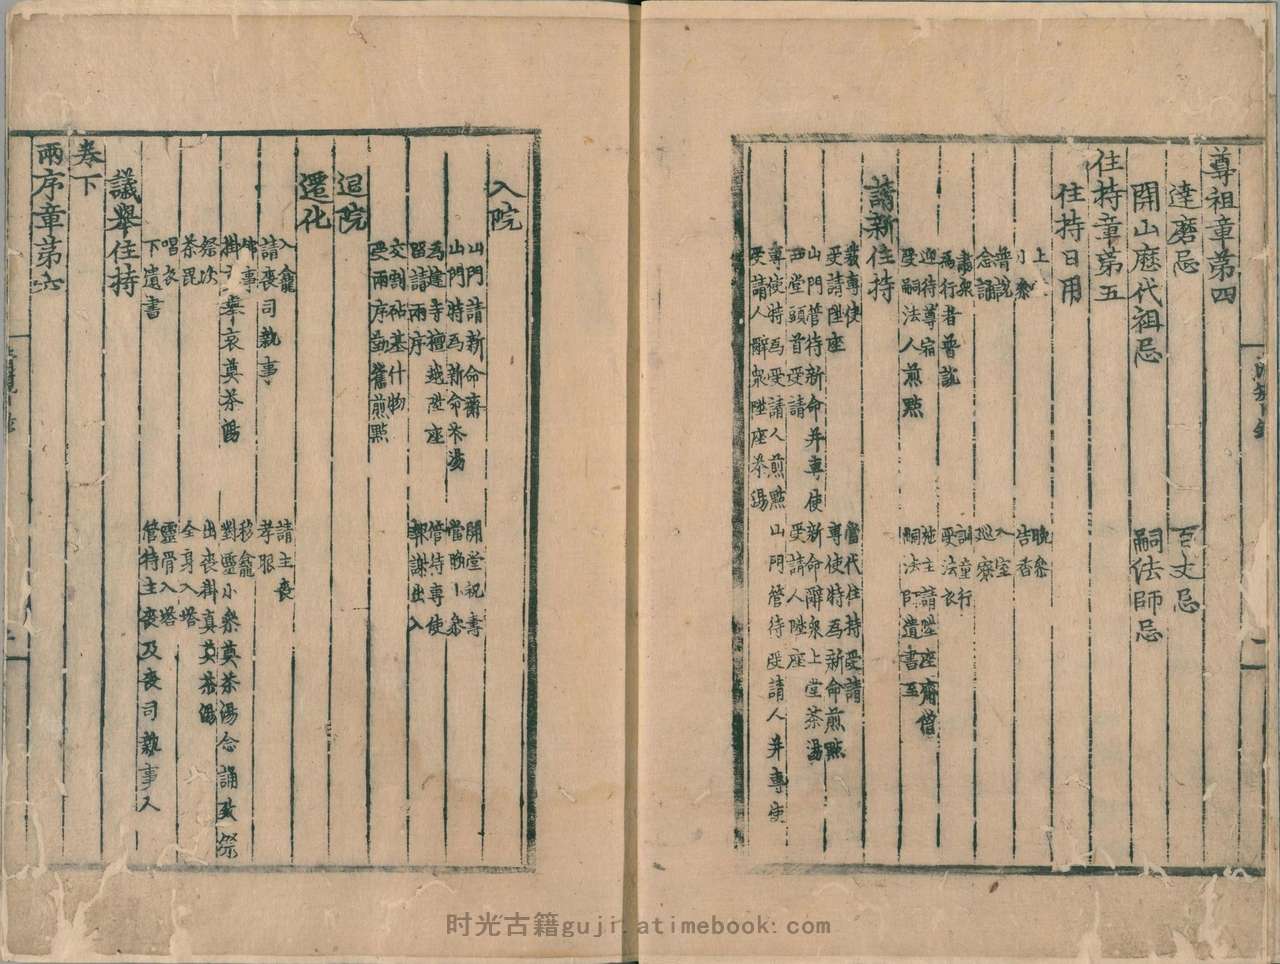 尊祖章第四
達磨忌 百丈忌
開山歷代祖忌 嗣法師忌
住持章第五
住持日用
上堂 晚參
小參 告香
普說 入室
念誦 巡寮
肅衆 訓童行
為行者普說 受法衣
迎待尊宿 施主請陞座齋僧
受嗣法人煎點 嗣法師遺書至
請新住持
發專使 當代住持受請
受請陞座 專使特為新命煎點
山門管待新命并專使 新命辭衆上堂茶湯
西堂頭首受請 受請人陞座
專使特為受請人煎點 山門管待受請人并專使
受請人辭衆陞座茶湯
入院
山門請新命齋 開堂祝壽
山門特為新命茶湯 當晚小參
為建寺檀越陞座 管待專使
留請兩序 報謝出入
交割砧基什物
受兩序勤舊煎點
退院
遷化
入龕 請主喪
請喪司執事 孝服
佛事 移龕
掛真舉哀奠茶湯 對靈小參奠茶湯念誦致祭
祭次 出喪掛真奠茶湯
茶毘 全身入塔
唱衣 靈骨入塔
下遺書 管待主喪及喪司執事人
議舉住持
卷下
兩序章第六
时光古籍guji.atimebook.com